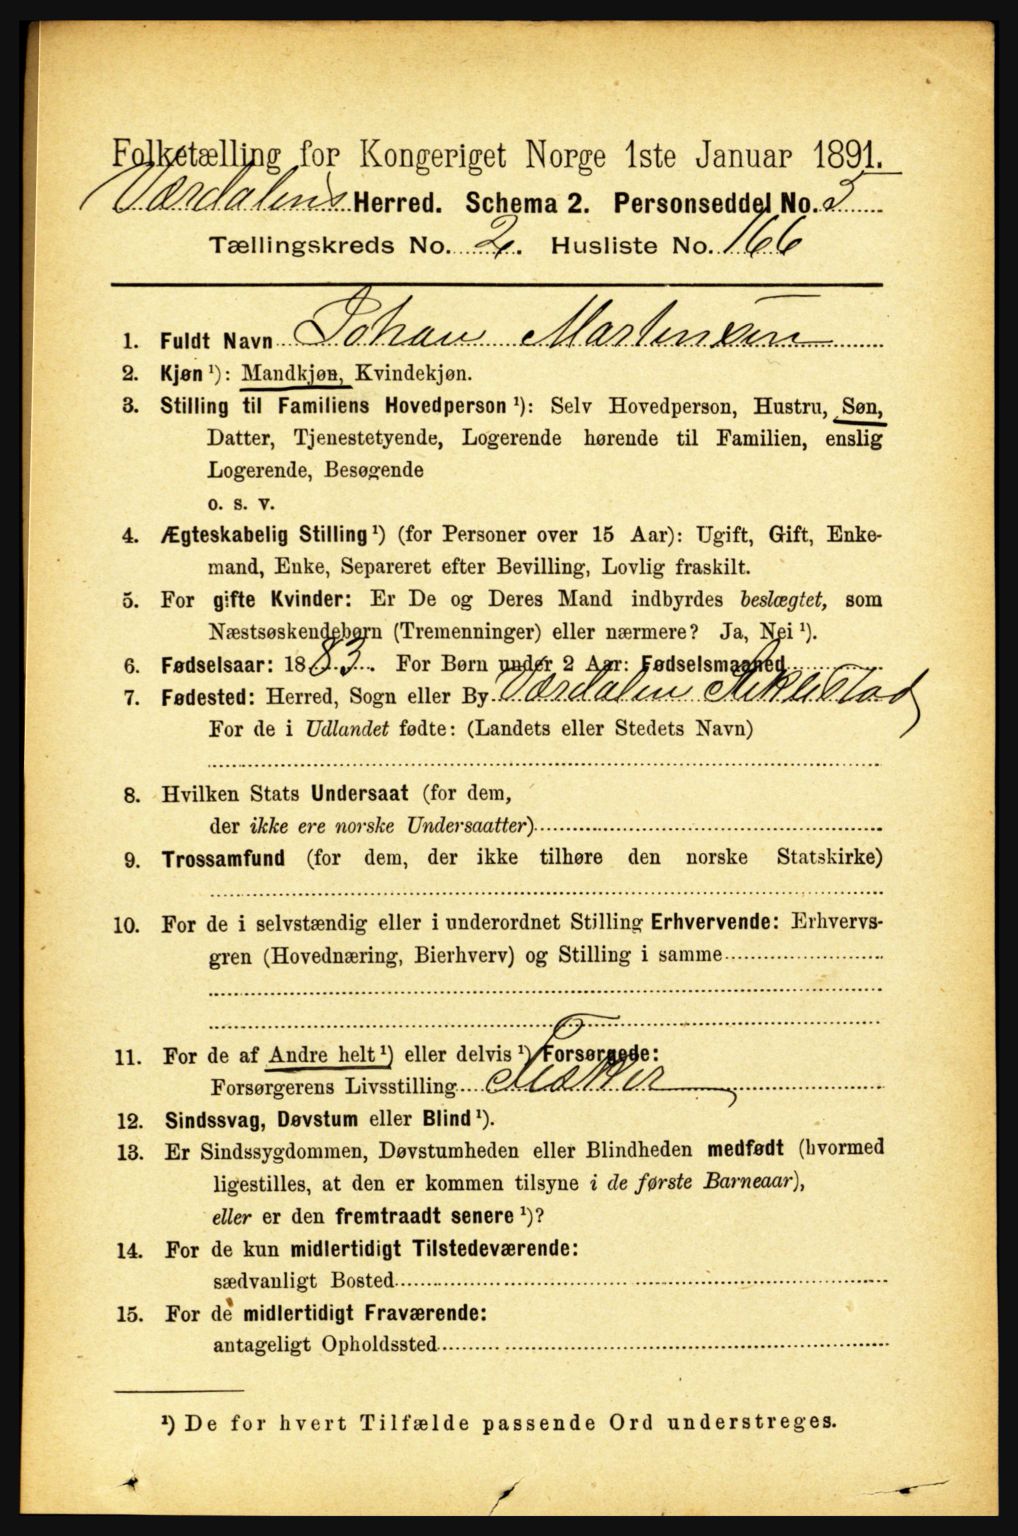 Folketælling for Kongeriget Norge 1ste Januar 1891.
Værdalens Herred. Schema 2. Personseddel No. 3
Tællingskreds No. 2. Husliste No. 166
1. Fuldt Navn Johan Martinsen
2. Kjøn ¹): Mandkjøn, Kvindekjøn.
3. Stilling til Familiens Hovedperson ¹): Selv Hovedperson, Hustru, Søn,
Datter, Tjenestetyende, Logerende hørende til Familien, enslig
Logerende, Besøgende
o. s. v.
4. Ægteskabelig Stilling ¹) (for Personer over 15 Aar): Ugift, Gift, Enke-
mand, Enke, Separeret efter Bevilling, Lovlig fraskilt.
5. For gifte Kvinder: Er De og Deres Mand indbyrdes beslægtet, som
Næstsøskendebørn (Tremenninger) eller nærmere? Ja, Nei ¹).
6. Fødselsaar: 1883. For Børn under 2 Aar: Fødselsmaaned
7. Fødested: Herred, Sogn eller By Værdalen Stiklestad
For de i Udlandet fødte: (Landets eller Stedets Navn)
8. Hvilken Stats Undersaat (for dem,
der ikke ere norske Undersaatter)
9. Trossamfund (for dem, der ikke tilhøre den norske Statskirke)
10. For de i selvstændig eller i underordnet Stilling Erhvervende: Erhvervs-
gren (Hovednæring, Bierhverv) og Stilling i samme
11. For de af Andre helt ¹) eller delvis ¹) Forsørgede:
Forsørgerens Livsstilling
12. Sindssvag, Døvstum eller Blind ¹).
13. Er Sindssygdommen, Døvstumheden eller Blindheden medfødt (hvormed
ligestilles, at den er kommen tilsyne i de første Barneaar),
eller er den fremtraadt senere ¹)?
14. For de kun midlertidigt Tilstedeværende:
sædvanligt Bosted
15. For de midlertidigt Fraværende:
antageligt Opholdssted
¹) De for hvert Tilfælde passende Ord understreges.